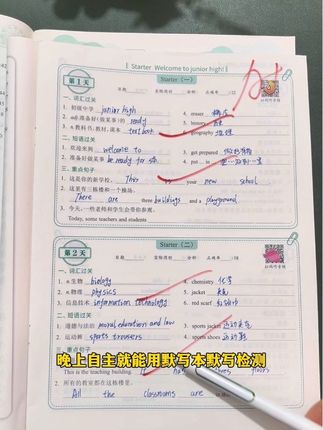 Starter Welcome to junior high!
第1天
Starter(一)
一、词汇过关
1. 初级中学 junior high
4. eraser 橡皮
2. adj.准备好(做某事)的 ready
5. history 历史
3. n.教科书;教材;课本 textbook
6. geography 地理
二、短语过关
1. 欢迎来到 welcome to
3. get prepared 做好准备
2. 准备好做某事 be ready for sth.
4. put...in 把…放到…里
三、重点句子
1. 这是你的新学校。 This is your new school
2. 这里有三栋楼和一个操场。
There are three buildings and a playground
3. 今天,一些老师和学生会带你参观。
Today, some teachers and students
第2天
Starter(二)
一、词汇过关
1. n.生物 biology
4. chemistry 化学
2. n.物理 physics
5. jacket
3. 信息技术 information technology
6. red scarf 红领巾
二、短语过关
1. 道德与法治 moral education and law
3. sports jacket
2. 运动裤 sports trousers
4. sports shoes 运动鞋
三、重点句子
晚上自主就能用默写本默写检测
This is the teaching building. It floors
2. 所有的教室都在这栋楼里。
All the classrooms are